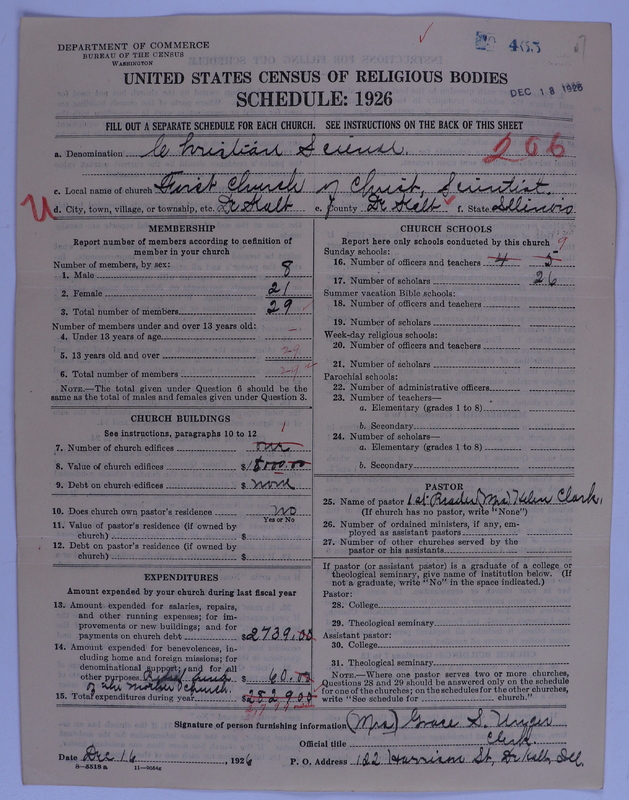 DEPARTMENT OF COMMERCE
BUREAU OF THE CENSUS
WASHINGTON
465
DEC 18 1926
UNITED STATES CENSUS OF RELIGIOUS BODIES
SCHEDULE: 1926
FILL OUT A SEPARATE SCHEDULE FOR EACH CHURCH. SEE INSTRUCTIONS ON THE BACK OF THIS SHEET
a. Denomination Christian Science. 206
c. Local name of church First Church of Christ, Scientist.
d. City, town, village, or township, etc. De Kalb e. County De Kalb f. State Illinois
MEMBERSHIP
Report number of members according to definition of
member in your church
Number of members, by sex:
1. Male 8
2. Female 21
3. Total number of members 29
Number of members under and over 13 years old:
4. Under 13 years of age -
5. 13 years old and over 29
6. Total number of members 29
NOTE.—The total given under Question 6 should be the
same as the total of males and females given under Question 3.
CHURCH BUILDINGS
See instructions, paragraphs 10 to 12
7. Number of church edifices one 1
8. Value of church edifices $ 18000.00
9. Debt on church edifices $ none
10. Does church own pastor's residence no
Yes or No
11. Value of pastor's residence (if owned by
church) $
12. Debt on pastor's residence (if owned by
church) $
EXPENDITURES
Amount expended by your church during last fiscal year
13. Amount expended for salaries, repairs,
and other running expenses; for im-
provements or new buildings; and for
payments on church debt $ 2739.00
14. Amount expended for benevolences, in-
cluding home and foreign missions; for
denominational support; and for all
other purposes Relief fund $ 60.00
of the mother church.
15. Total expenditures during year $ 2829.00
CHURCH SCHOOLS
Report here only schools conducted by this church
Sunday schools: 9
16. Number of officers and teachers 4 5
17. Number of scholars 26
Summer vacation Bible schools:
18. Number of officers and teachers
19. Number of scholars
Week-day religious schools:
20. Number of officers and teachers
21. Number of scholars
Parochial schools:
22. Number of administrative officers
23. Number of teachers—
a. Elementary (grades 1 to 8)
b. Secondary
24. Number of scholars—
a. Elementary (grades 1 to 8)
b. Secondary
PASTOR
25. Name of pastor 1st Reader (Mrs) Helen Clark,
(If church has no pastor, write "None")
26. Number of ordained ministers, if any, em-
ployed as assistant pastors
27. Number of other churches served by the
pastor or his assistants
If pastor (or assistant pastor) is a graduate of a college or
theological seminary, give name of institution below. (If
not a graduate, write "No" in the space indicated.)
Pastor:
28. College
29. Theological seminary
Assistant pastor:
30. College
31. Theological seminary
NOTE.—Where one pastor serves two or more churches,
Questions 28 and 29 should be answered only on the schedule
for one of the churches; on the schedules for the other churches,
write "See schedule for church."
Signature of person furnishing information (Mrs) Grace S. Unger
Official title Clerk.
Date Dec 16, 1926 P. O. Address 122 Harrison St, De Kalb, Ill.
8—5518 a 11—9584